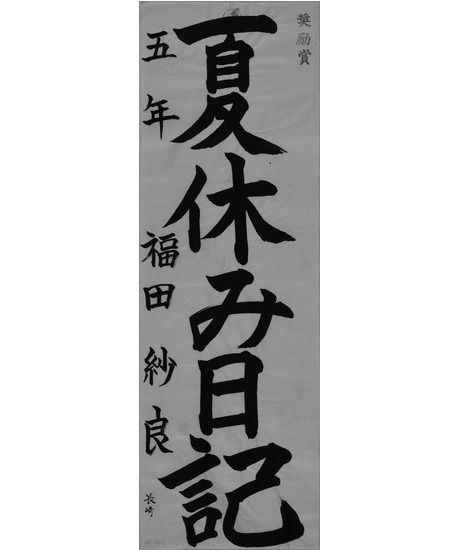 奨励賞
夏休み日記
五年 福田紗良
長崎